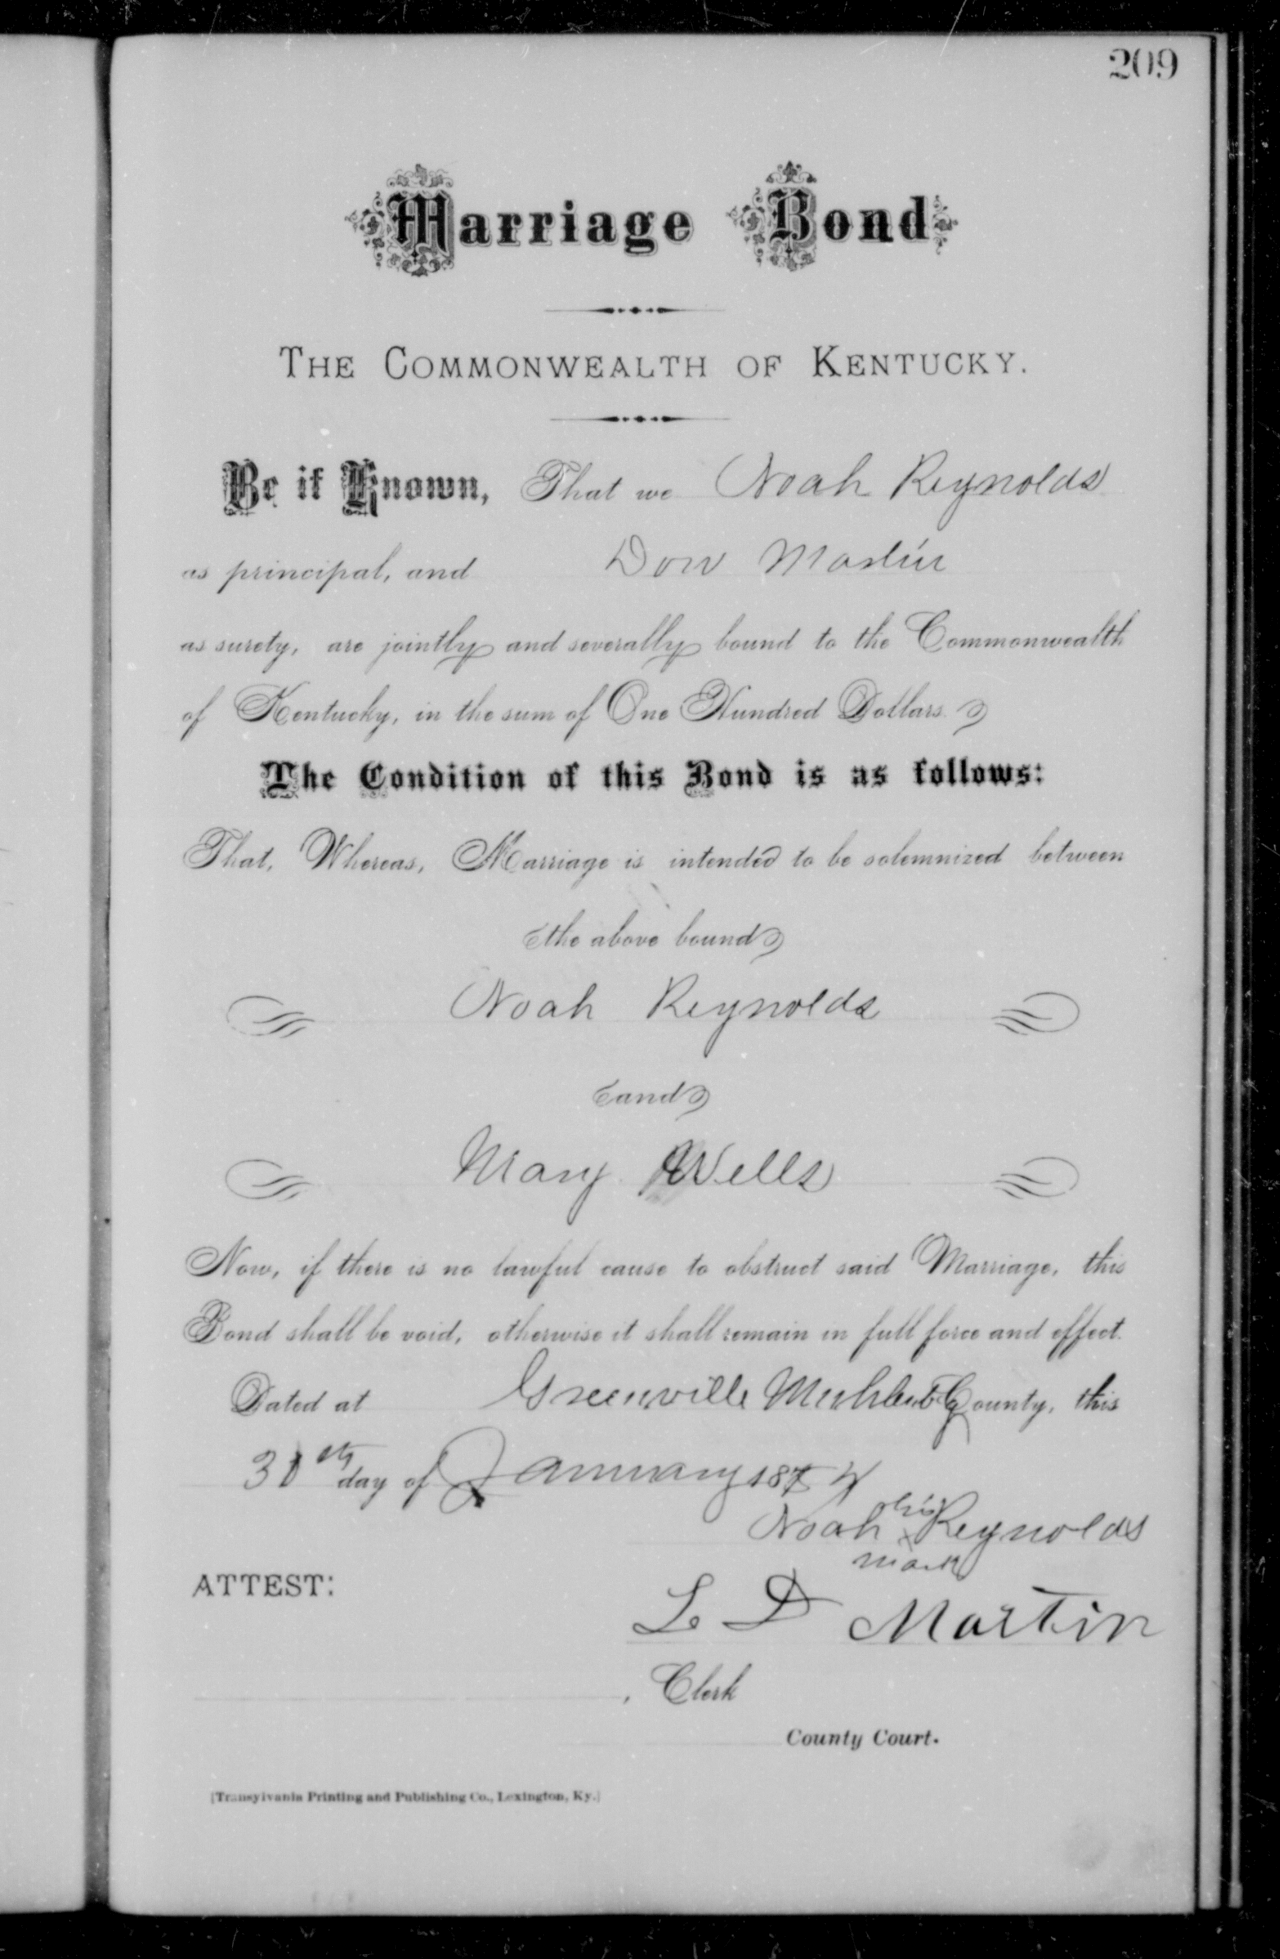 209
Marriage Bond
THE COMMONWEALTH OF KENTUCKY.
Be it Known, That we Noah Reynolds
as principal, and Dow Martin
as surety, are jointly and severally bound to the Commonwealth
of Kentucky, in the sum of One Hundred Dollars.
The Condition of this Bond is as follows:
That, Whereas, Marriage is intended to be solemnized between
the above bound
Noah Reynolds
and
Mary Wells
Now, if there is no lawful cause to obstruct said Marriage, this
Bond shall be void, otherwise it shall remain in full force and effect.
Dated at Greenville County, this
30th day of January 187
Noah his Reynolds
x
mark
ATTEST:
L D Martin
, Clerk
County Court.
[Transylvania Printing and Publishing Co., Lexington, Ky.]